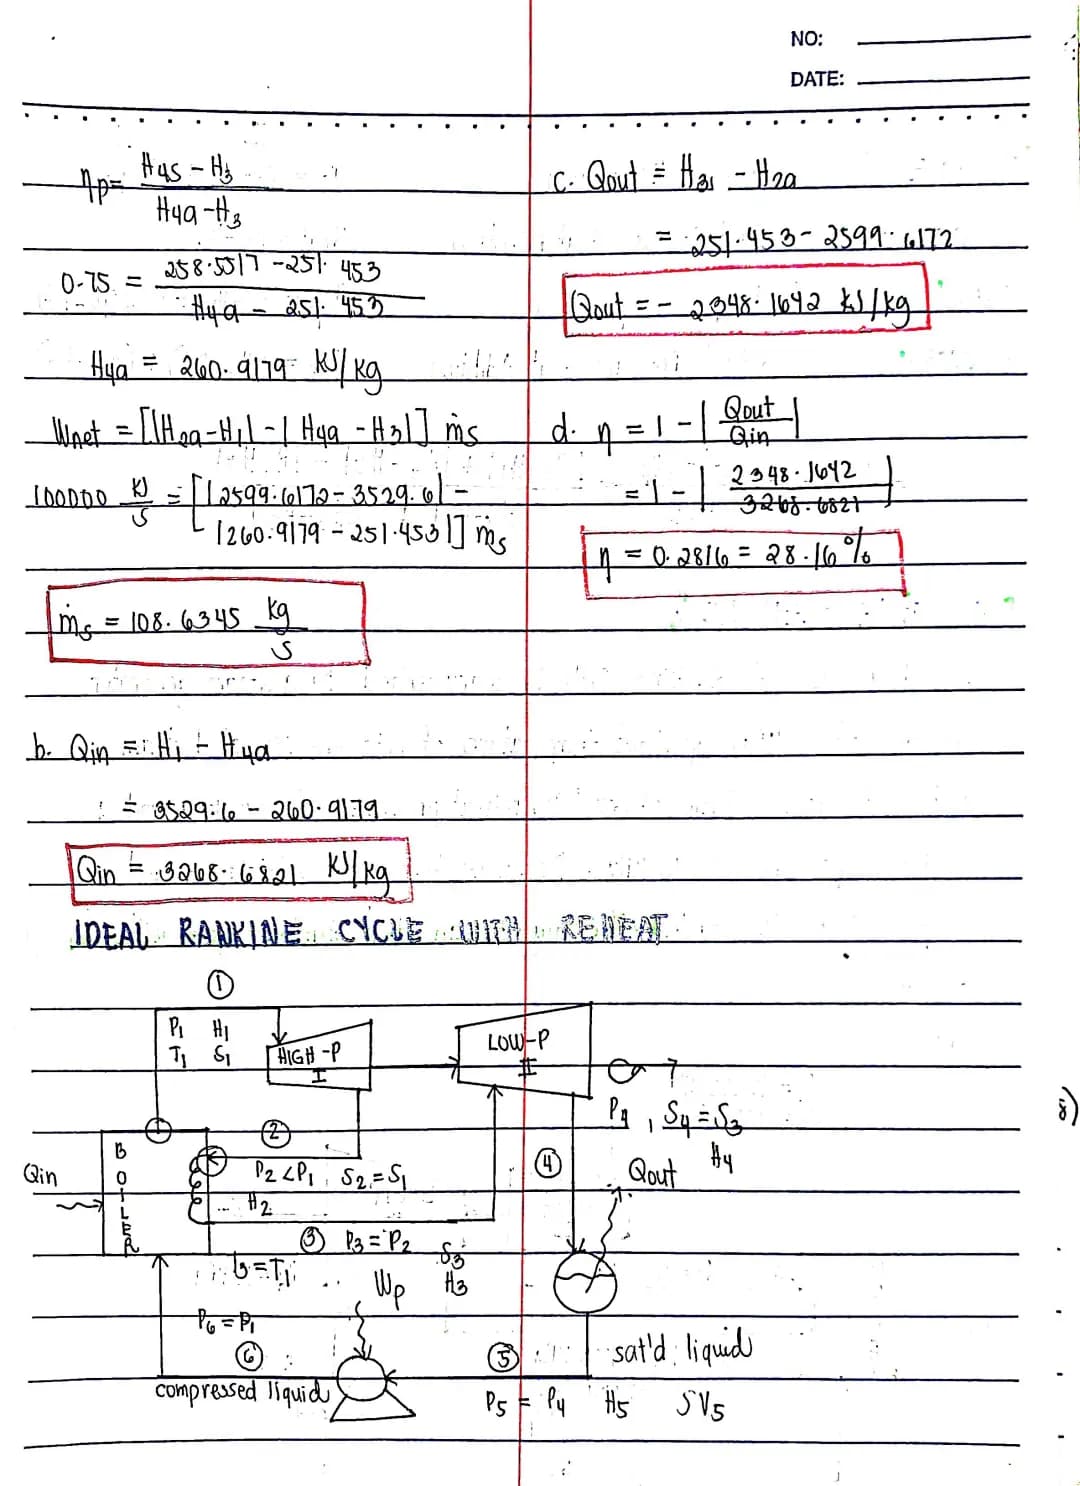 NO:
DATE:
ηp = H4s - H3 / H4a - H3
0.75 = 258.5517 - 251.453 / H4a - 251.453
H4a = 260.9179 kJ/kg
Wnet = [|H2a - H1| - |H4a - H3|] ṁs
100000 kJ/s = [|2599.6172 - 3529.6| -
|260.9179 - 251.453|] ṁs
ṁs = 108.6345 kg/s
b. Qin = H1 - H4a
= 3529.6 - 260.9179
Qin = 3268.6821 kJ/kg
c. Qout = H3 - H2a
= 251.453 - 2599.6172
Qout = - 2348.1642 kJ/kg
d. η = 1 - |Qout / Qin|
= 1 - |2348.1642 / 3268.6821|
η = 0.2816 = 28.16%
IDEAL RANKINE CYCLE WITH REHEAT
①
P1 H1
T1 S1
HIGH-P
I
LOW-P
II
P4, S4 = S3
H4
BOILER
Qin
②
P2 < P1, S2 = S1
H2
④
Qout
③ P3 = P2 S3
H3
T1
Wp
P6 = P1
⑥
compressed liquid
⑤
sat'd liquid
P5 = P4 H5 SV5